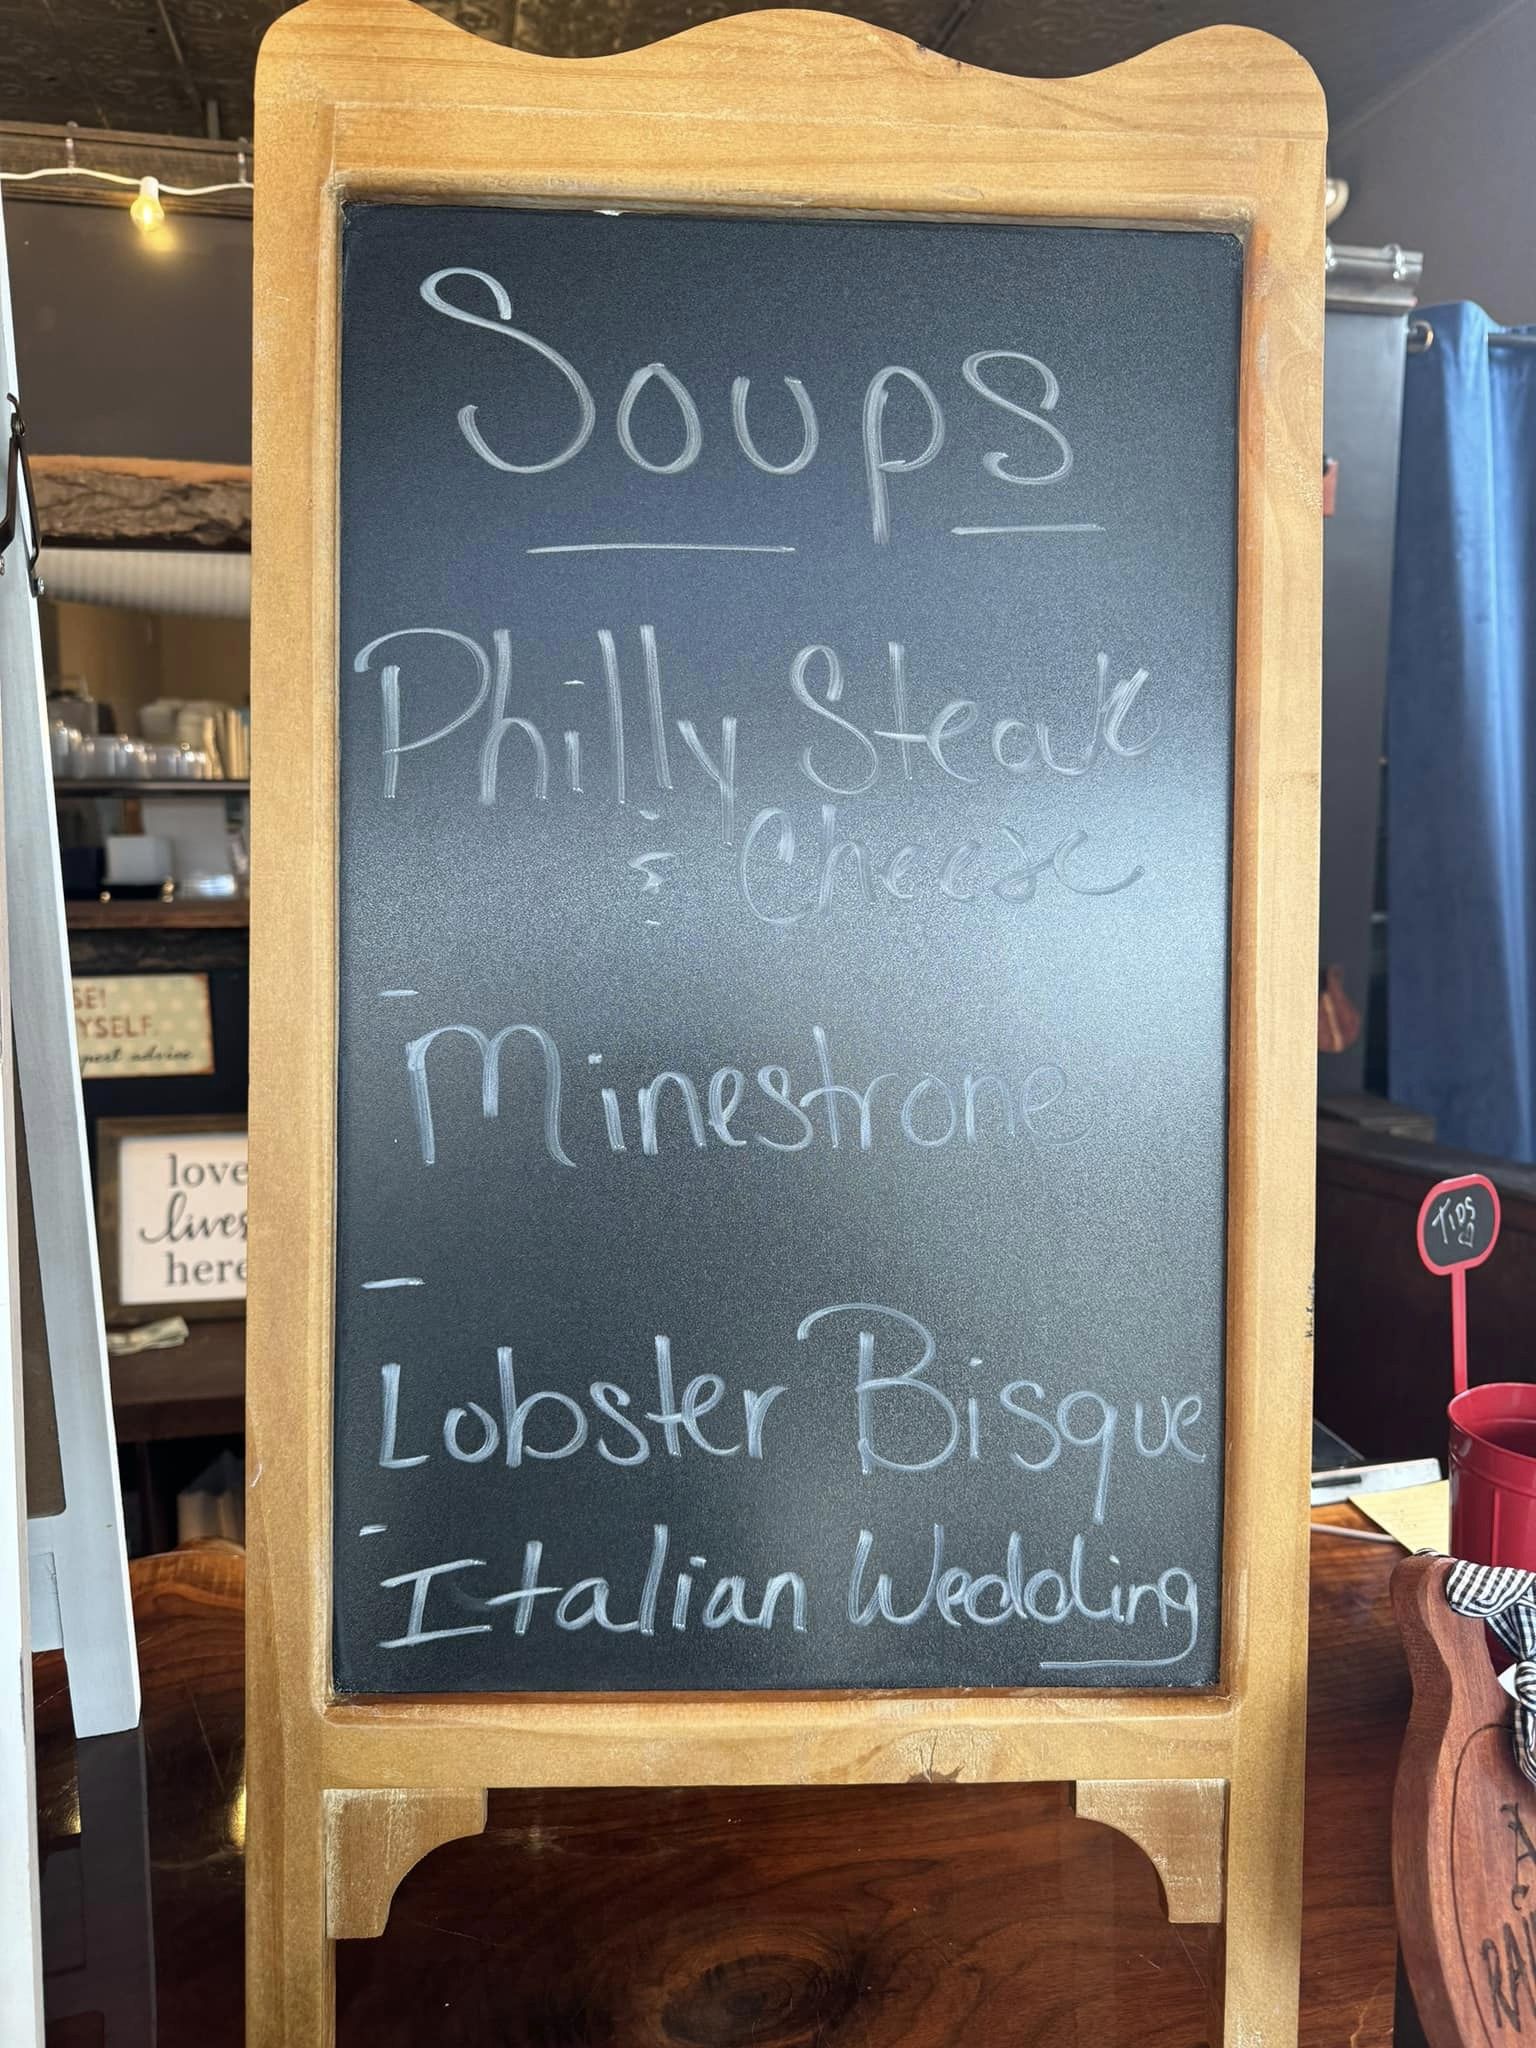 Soups
Philly Steak
& Cheese
- Minestrone
- Lobster Bisque
- Italian Wedding
SE!
YSELF.
pert advice
love
lives
here
TIPS